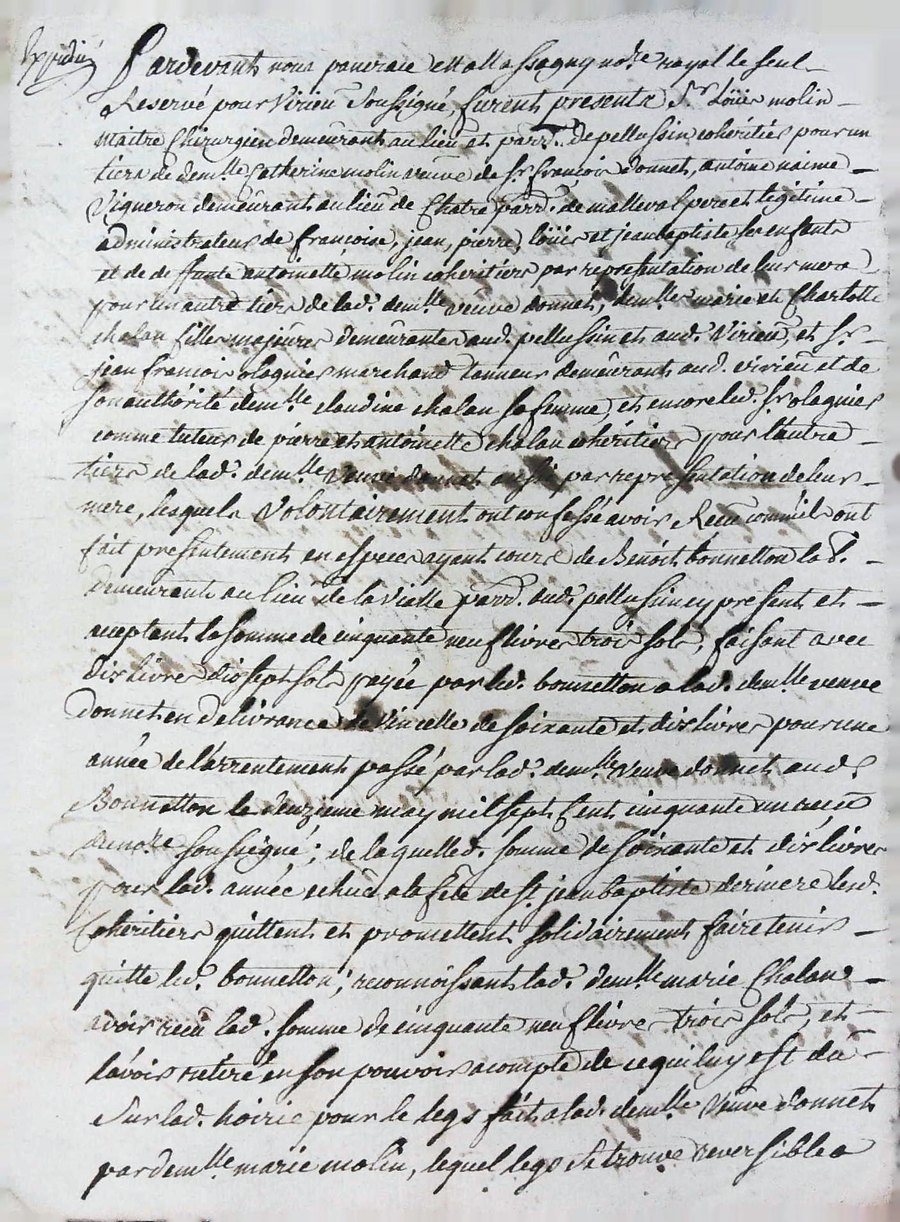 Expédié
Pardevant nous pancrace et allassagny no.re royal le seul
Reservé pour Virieu Soussigné, furent presents S.r Loüis molin
Maitre Chirurgien demeurant au lieu et parr. de pellussin cohéritier pour un
tiers de dem.lle Catherine molin veuve de S.r françois donnet, antoine naime
Vigneron demeurant au lieu de Chatre parr. de malleval pere et legitime
administrateur de françoise, jean, pierre, loüis et jean baptiste ses enfants
et de de funte antoinette molin coheritiers par representation de leur mere
pour un autre tiers de lad. dem.lle veuve donnet, dem.lles marie et Charlotte
chalan filles majeures demeurantes aud. pellussin et aud. Virieu, et S.r
jean francois olagnier marchand tanneur demeurant aud. virieu et de
son authorité dem.lle claudine chalan sa femme, et encore led. S.r olagnier
comme tuteur de pierre et antoinette chalan cohéritiers pour l'autre
tiers de lad. dem.lle Veuve donnet aussi par representation de leur
mere, lesquels Volontairement ont confessé avoir Receu comm'ils ont
fait presentement en especes ayant cours de Benoit bonnetton lab.
demeurant au lieu de la Vialle parr. dud. pellussin cy present et
acceptant la somme de cinquante neuf livres trois sols, faisant avec
dix livres dix sept sols payée par led. bonnetton a lad. dem.lle veuve
donnet en délivrance de vincelle de soixante et dix livres pour une
année de l'arrentement passé par lad. dem.lle Veuve donnet aud.
Bonnetton le deuzieme may mil sept Cent cinquante un receu
dud. no.re soussigné; de laquelled. somme de soixante et dix livres
pour lad. année echue a la fête de S.t jean baptiste derniere lesd.
Cohéritiers quittent et promettent solidairement faire tenir
quitte led. bonnetton; reconnoissant lad. dem.lle marie Chalan
avoir receu lad. somme de cinquante neuf livres trois sols, et
l'avoir retiré en son pouvoir acompte de ce qui luy est dû
Sur lad. hoirie pour le legs fait a lad. dem.lle Veuve donnet
par dem.lle marie molin, lequel legs se trouve reversible a